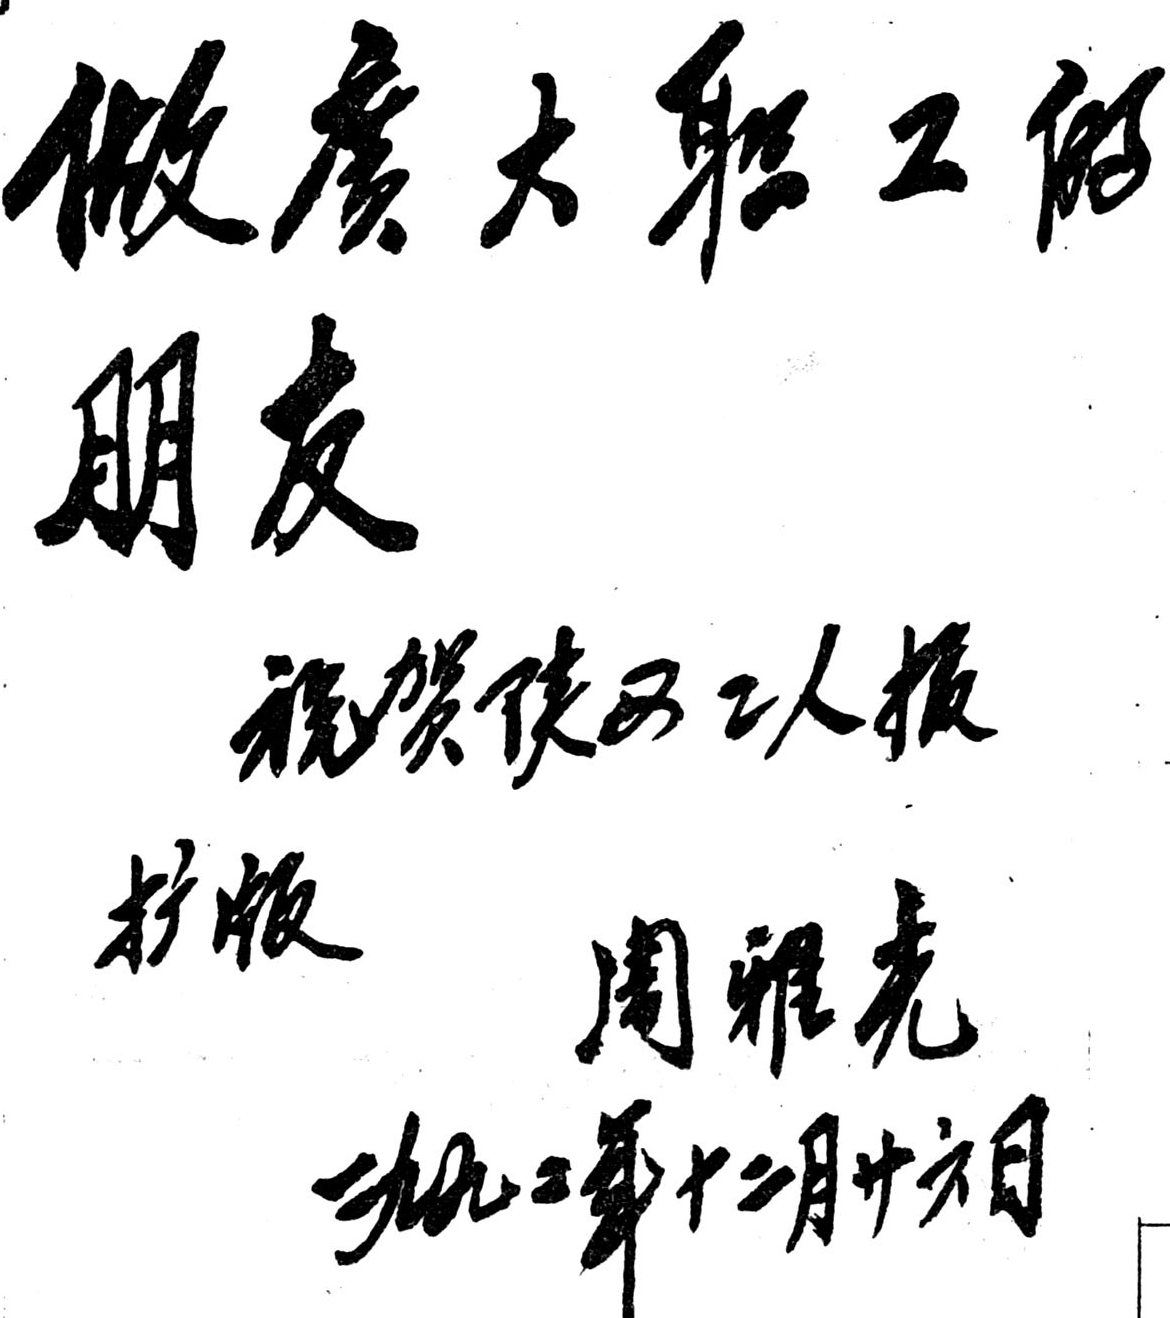 做廣大职工的
朋友
祝贺陕西工人报
扩版
周雅光
一九九二年十二月廿六日